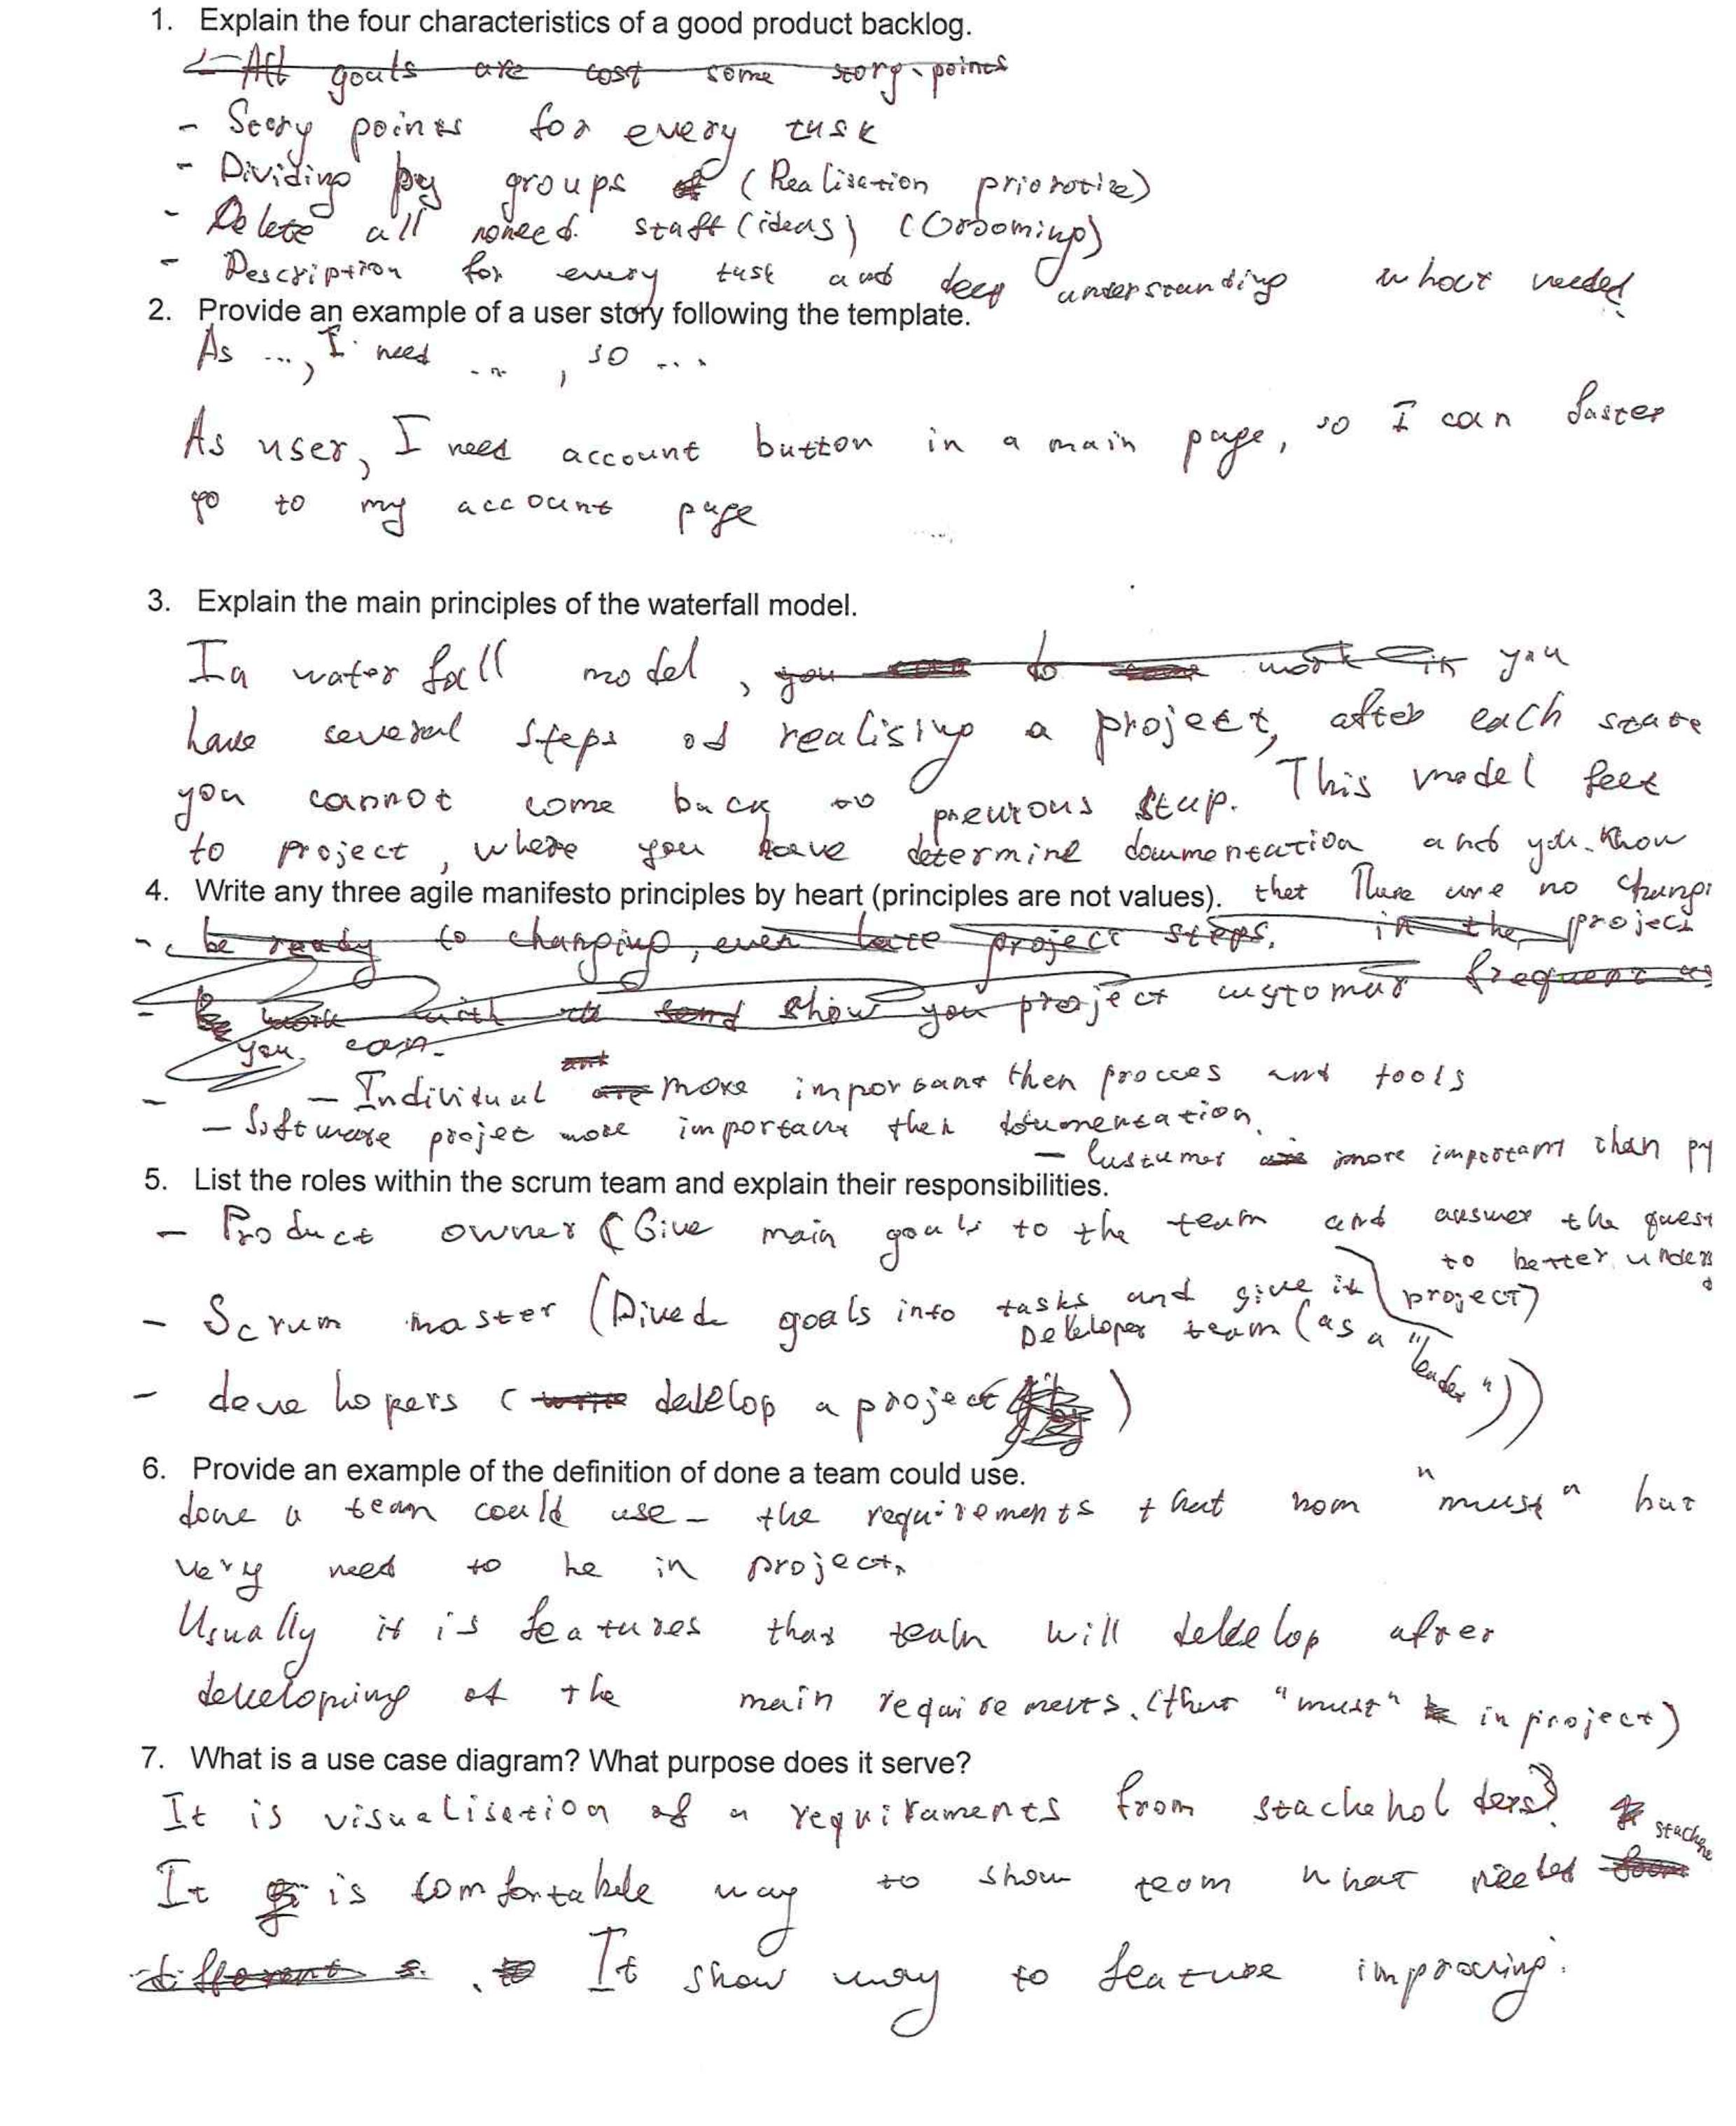 1. Explain the four characteristics of a good product backlog.
- All goals are cost some story points
- Story points for every task
- Dividing by groups (Realisation priorotize)
- Delete all noneed staff (ideas) (Grooming)
- Description for every task and deep understanding what needed
2. Provide an example of a user story following the template.
As ..., I need ..., so ...
As user, I need account button in a main page, so I can faster
go to my account page
3. Explain the main principles of the waterfall model.
In waterfall model, you to work in you
have several steps of realising a project, after each state
you cannot come back to previous step. This model feet
to project, where you have determine documentation and you know
4. Write any three agile manifesto principles by heart (principles are not values). that There are no changi
- be ready to changing, even late project steps. in the project
- be work with show you project customer frequent as
you can.
- Individual are more important then procces and tools
- Software projec more important then documentation.
- Custumer more important than
5. List the roles within the scrum team and explain their responsibilities.
- Product owner (Give main goals to the team and answer the quest
to better unders
project)
- Scrum master (Dived goals into tasks and give it
Developer team (as a "leader"))
- deve hopers (write develop a project)
6. Provide an example of the definition of done a team could use.
done a team could use - the requirements that nom "must" but
very need to be in project.
Usually it is features that team will develop after
developing of the main requirements. (that "must" in project)
7. What is a use case diagram? What purpose does it serve?
It is visualisation of a requiraments from stackeholders
It is comfortable way to show team what needed
different s. It show way to feature improving.